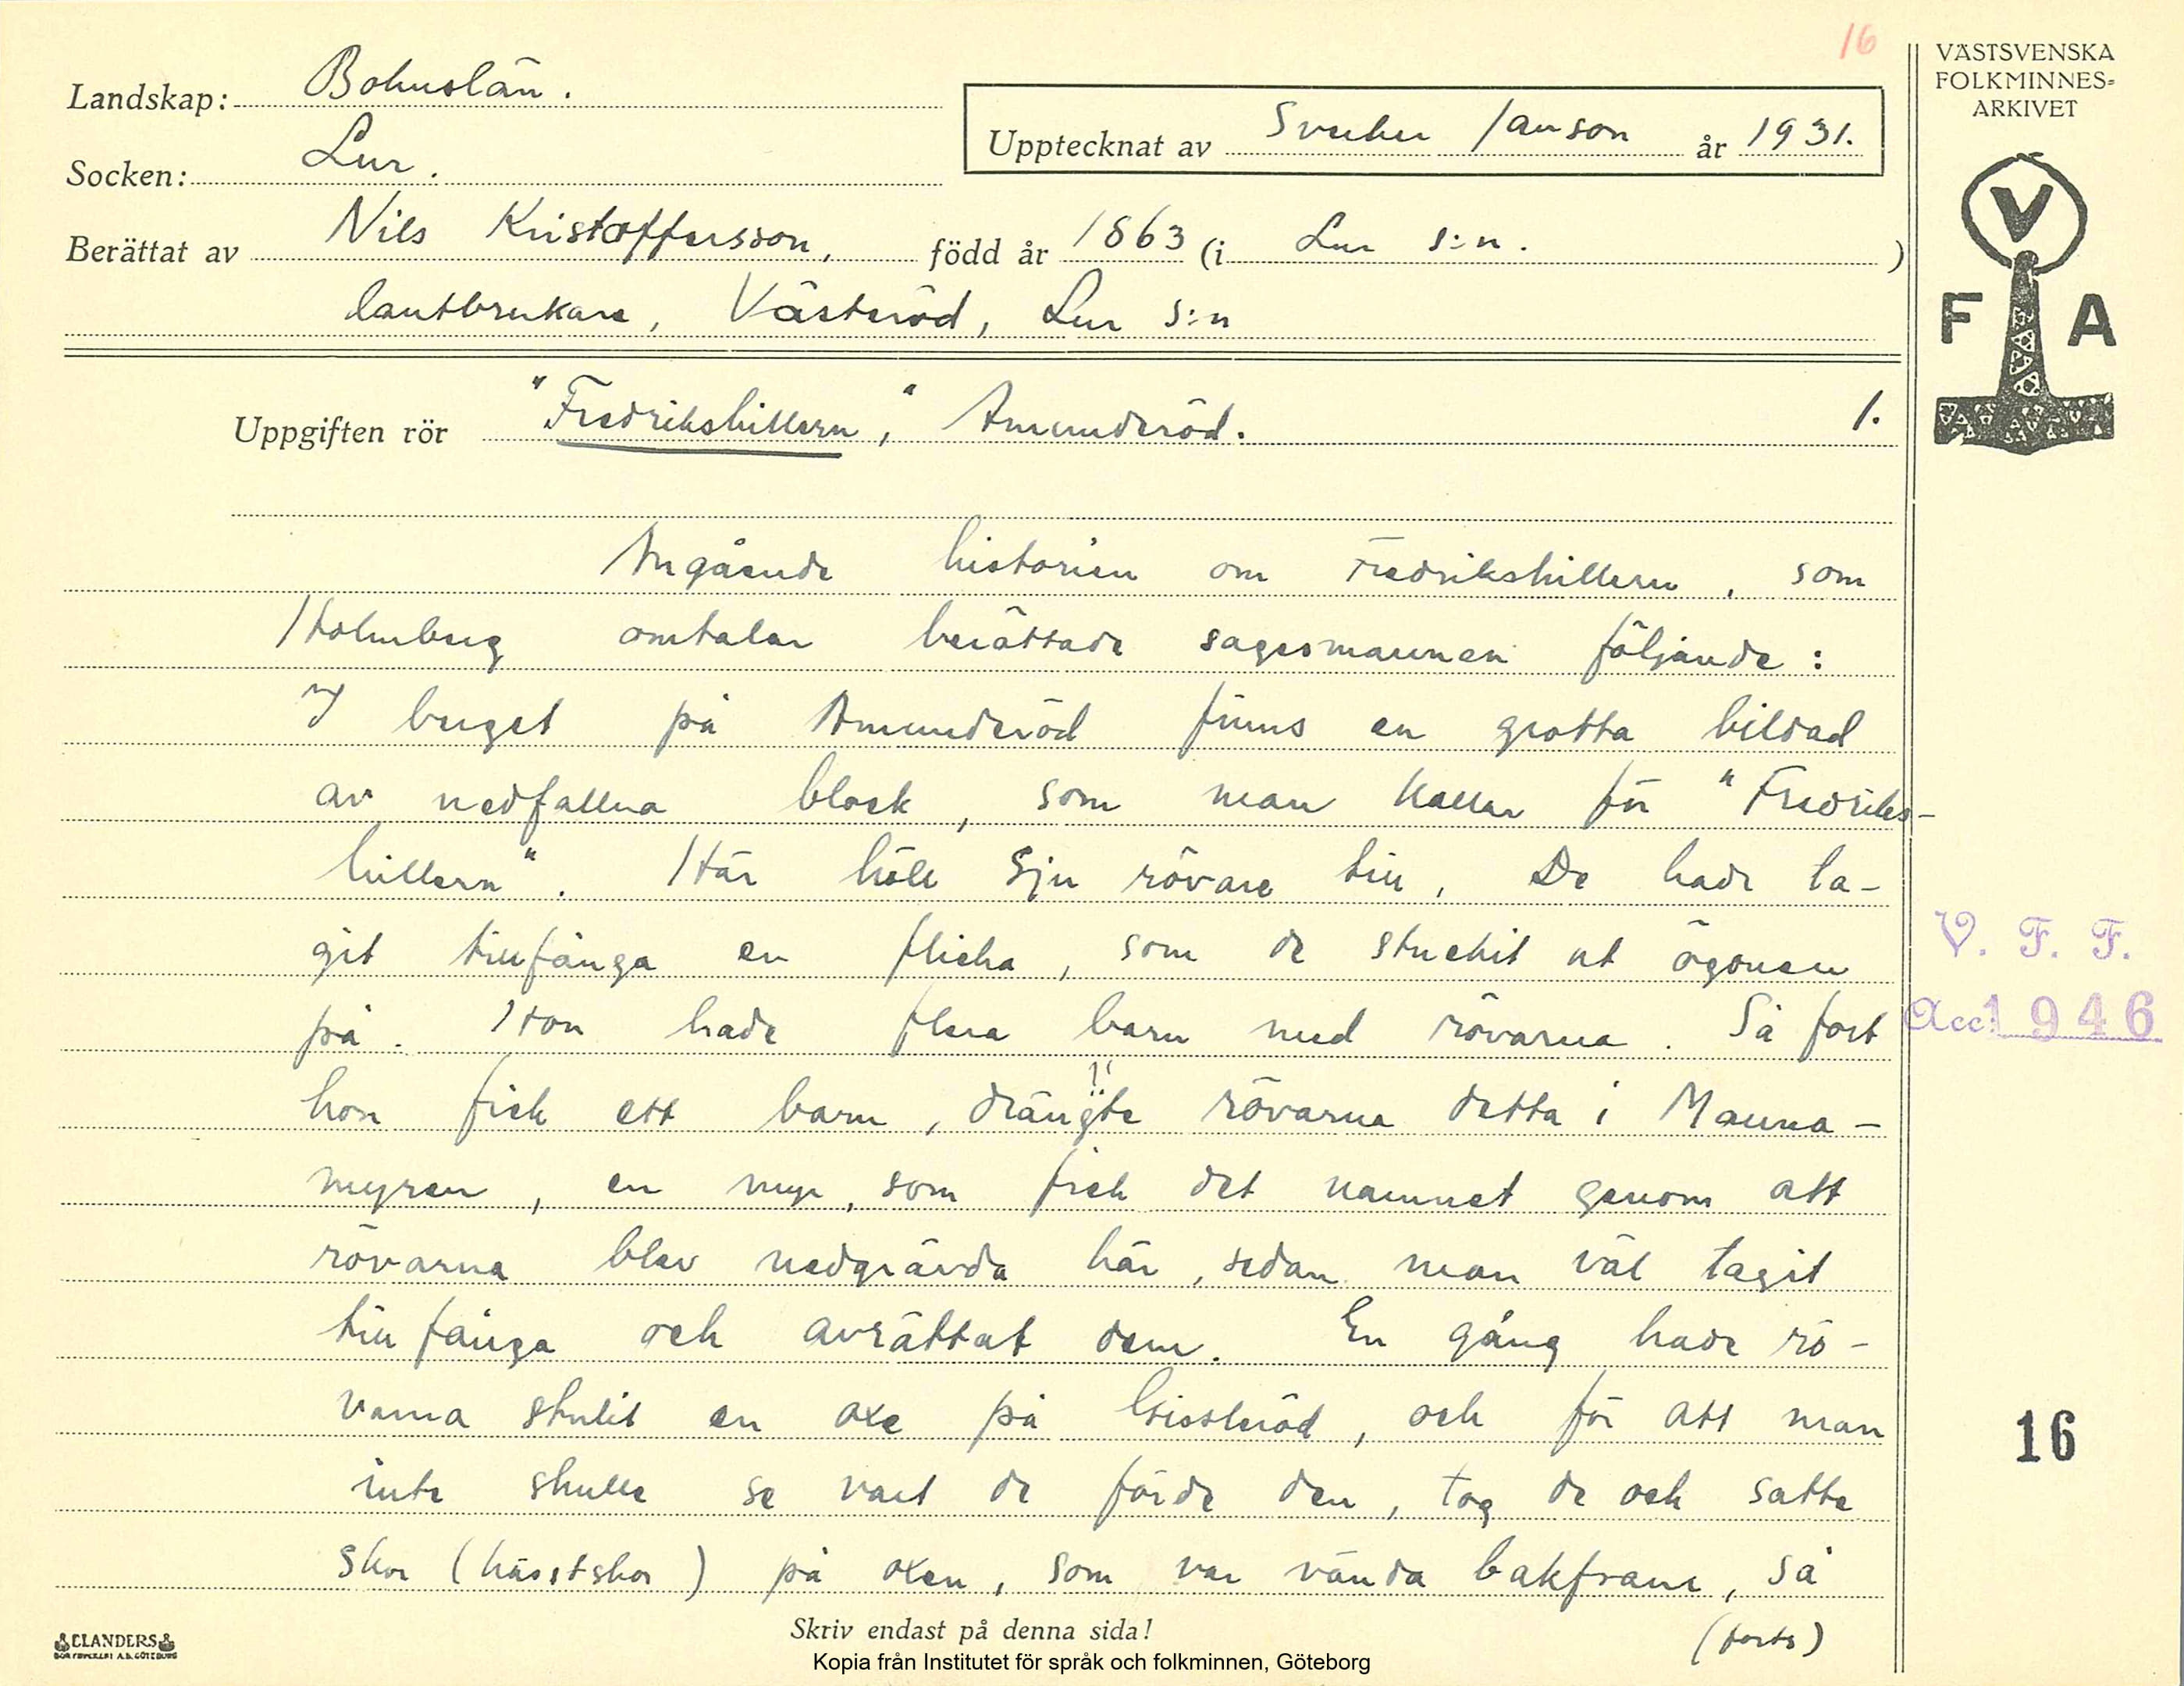 16
VÄSTSVENSKA
FOLKMINNES=
ARKIVET
Landskap: Bohuslän.
Upptecknat av Sverker Janson år 1931.
Socken: Lur.
Berättat av Nils Kristoffersson, född år 1863 (i Lur s:n.)
lantbrukare, Västeröd, Lur s:n
V
F A
Uppgiften rör "Fredrikshillern", Amunderöd. 1.
Angående historien om Fredrikshillern, som
Holmberg omtalar berättade sagesmannen följande:
I berget på Amunderöd finns en grotta bildad
av nedfallna block, som man kallar för "Fredriks-
hillern". Här höll sju rövare till. De hade ta-
git tillfånga en flicka, som de stuckit ut ögonen
på. Hon hade flera barn med rövarna. Så fort
hon fick ett barn, drängte rövarna detta i Manna-
myren, en myr, som fick det namnet genom att
rövarna blev nedgrävda här, sedan man väl tagit
till fånga och avrättat dem. En gång hade rö-
varna stulit en oxe på, och för att man
inte skulle se vart de förde den, tog de och satte
skor (hästskor) på oxen, som var vända bakfram, så
(forts)
V. F. F.
Acc: 1946
16
ELANDERS
BOKTRYCKERI A.B. GÖTEBORG
Skriv endast på denna sida!
Kopia från Institutet för språk och folkminnen, Göteborg